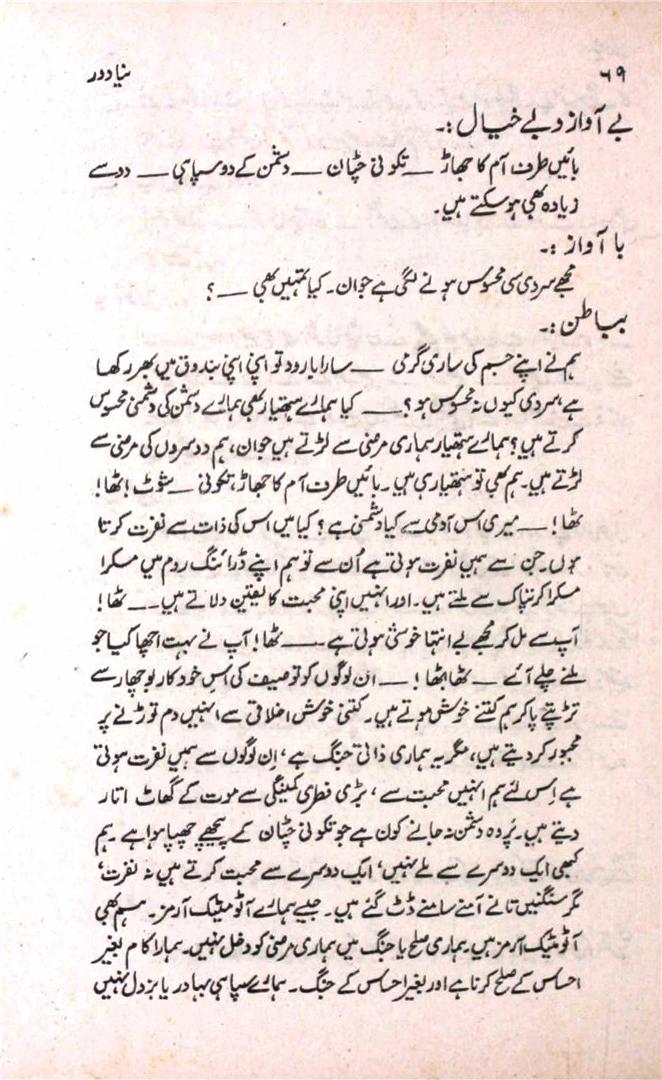 ۶۹
نیا دور
بے آواز دبے خیال :۔
بائیں طرف آم کا جھاڑ — تکونی چٹان — دشمن کے دو سپاہی — دو سے
زیادہ بھی ہو سکتے ہیں۔
با آواز :۔
مجھے سردی سی محسوس ہونے لگی ہے جوان۔ کیا تمہیں بھی — ؟
بباطن :۔
ہم نے اپنے جسم کی ساری گرمی — سارا بارود تو اپنی اپنی بندوق میں بھر رکھا
ہے، سردی کیوں نہ محسوس ہو؟ — کیا ہمارے ہتھیار کبھی ہمارے دشمن کی دشمنی محسوس
کرتے ہیں؟ ہمارے ہتھیار ہماری مرضی سے لڑتے ہیں جوان، ہم دوسروں کی مرضی سے
لڑتے ہیں۔ ہم بھی تو ہتھیار ہی ہیں۔ بائیں طرف آم کا جھاڑ، تکونی — شوٹ! ٹھا!
ٹھا! — میری اس آدمی سے کیا دشمنی ہے؟ کیا میں اس کی ذات سے نفرت کرتا
ہوں۔ جن سے ہمیں نفرت ہوتی ہے اُن سے تو ہم اپنے ڈرائنگ روم میں مسکرا
مسکرا کر تپاک سے ملتے ہیں۔ اور انہیں اپنی محبت کا یقین دلاتے ہیں — ٹھا!
آپ سے مل کر مجھے بے انتہا خوشی ہوتی ہے — ٹھا! آپ نے بہت اچھا کیا جو
ملنے چلے آئے — ٹھا ٹھا! — ان لوگوں کو توصیف کی اس خودکار بوچھار سے
تڑپتے پا کر ہم کتنے خوش ہوتے ہیں۔ کتنی خوش اخلاقی سے انہیں دم توڑنے پر
مجبور کر دیتے ہیں، مگر یہ ہماری ذاتی جنگ ہے، اِن لوگوں سے ہمیں نفرت ہوتی
ہے اِس لئے ہم انہیں محبت سے، بڑی فطری کمینگی سے موت کے گھاٹ اتار
دیتے ہیں۔ پر وہ دشمن نہ جانے کون ہے جو تکونی چٹان کے پیچھے چھپا ہوا ہے۔ ہم
کبھی ایک دوسرے سے ملے نہیں، ایک دوسرے سے محبت کرتے ہیں نہ نفرت،
مگر سنگینیں تانے آمنے سامنے ڈٹ گئے ہیں۔ جیسے ہمارے آٹومیٹک آرمز۔ ہم بھی
آٹومیٹک آرمز ہیں۔ ہماری صلح یا جنگ میں ہماری مرضی کو دخل نہیں۔ ہمارا کام بغیر
احساس کے صلح کرنا ہے اور بغیر احساس کے جنگ۔ ہمارے سپاہی بہادر یا بزدل نہیں